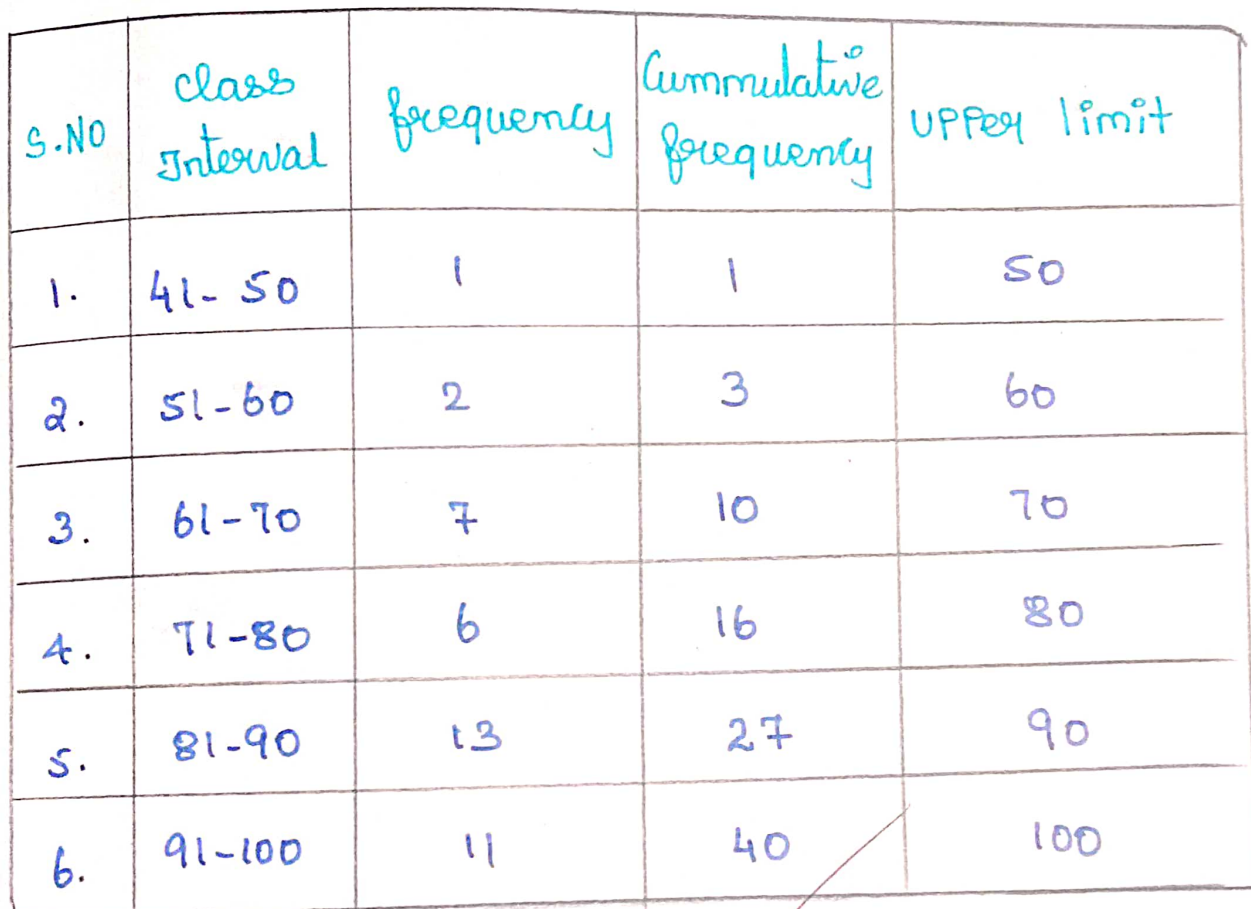 S.NO | class Interval | frequency | Cummulative frequency | UPPer limit
1. | 41-50 | 1 | 1 | 50
2. | 51-60 | 2 | 3 | 60
3. | 61-70 | 7 | 10 | 70
4. | 71-80 | 6 | 16 | 80
5. | 81-90 | 13 | 27 | 90
6. | 91-100 | 11 | 40 | 100